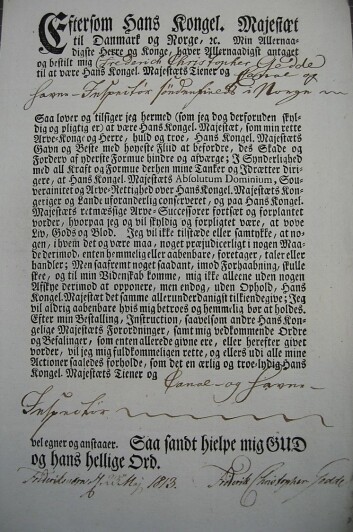 Eftersom Hans Kongel. Majestæt
til Danmark og Norge, ꝛc. Min Allernaa-
digste Herre og Konge, haver Allernaadigst antaget
og bestilt mig Frederich Christopher Gedde
til at være Hans Kongel. Majestæts Tiener og Canal og
Havne-Inspector søndenfields i Norge
Saa lover og tilsiger jeg hermed (som jeg dog derforuden skyl-
dig og pligtig er) at være Hans Kongel. Majestæt, som min rette
Arve-Konge og Herre, huld og troe, Hans Kongel. Majestæts
Gavn og Beste med høyeste Fliid at befordre, des Skade og
Fordærv af yderste Formue hindre og afværge; I Synderlighed
med all Kraft og Formue derhen mine Tanker og Idrætter dirige-
re, at Hans Kongel. Majestæts Absolutum Dominium, Sou-
verainitet og Arve-Rettighed over Hans Kongel. Majestæts Kon-
geriger og Lande uforanderlig conserveret, og paa Hans Kongel.
Majestæts retmæssige Arve-Successorer fortsæt og forplantet
vorder, hvorpaa jeg og vil skyldig og forpligtet være, at vove
Liv, Gods og Blod. Jeg vil ikke tilstæde eller samtykke, at no-
gen, i hvem det og være maa, noget præjudicerligt i nogen Maa-
de derimod, enten hemmelig eller aabenbare, foretager, taler eller
handler; Men saafremt noget saadant, imod Forhaabning, skulle
skee, og til min Videnskab komme, mig ikke alleene uden nogen
Afskye derimod at opponere, men endog, uden Ophold, Hans
Kongel. Majestæt det samme allerunderdanigst tilkiendegive; Jeg
vil aldrig aabenbare hvis mig betroes og hemmelig bør at holdes.
Efter min Bestalling, Instruction, saavelsom andre Hans Kon-
gelige Majestæts Forordninger, samt mig vedkommende Ordre
og Befalinger, som enten allerede givne ere, eller herefter givet
vorder, vil jeg mig fuldkommeligen rette, og ellers udi alle mine
Actioner saaledes forholde, som det en ærlig og troe-lydig Hans
Kongel. Majestæts Tiener og Canal- og Havne-
Inspector
vel egner og anstaaer. Saa sandt hielpe mig GUD
og hans hellige Ord.
May 1813. Frederik Christopher Gedde